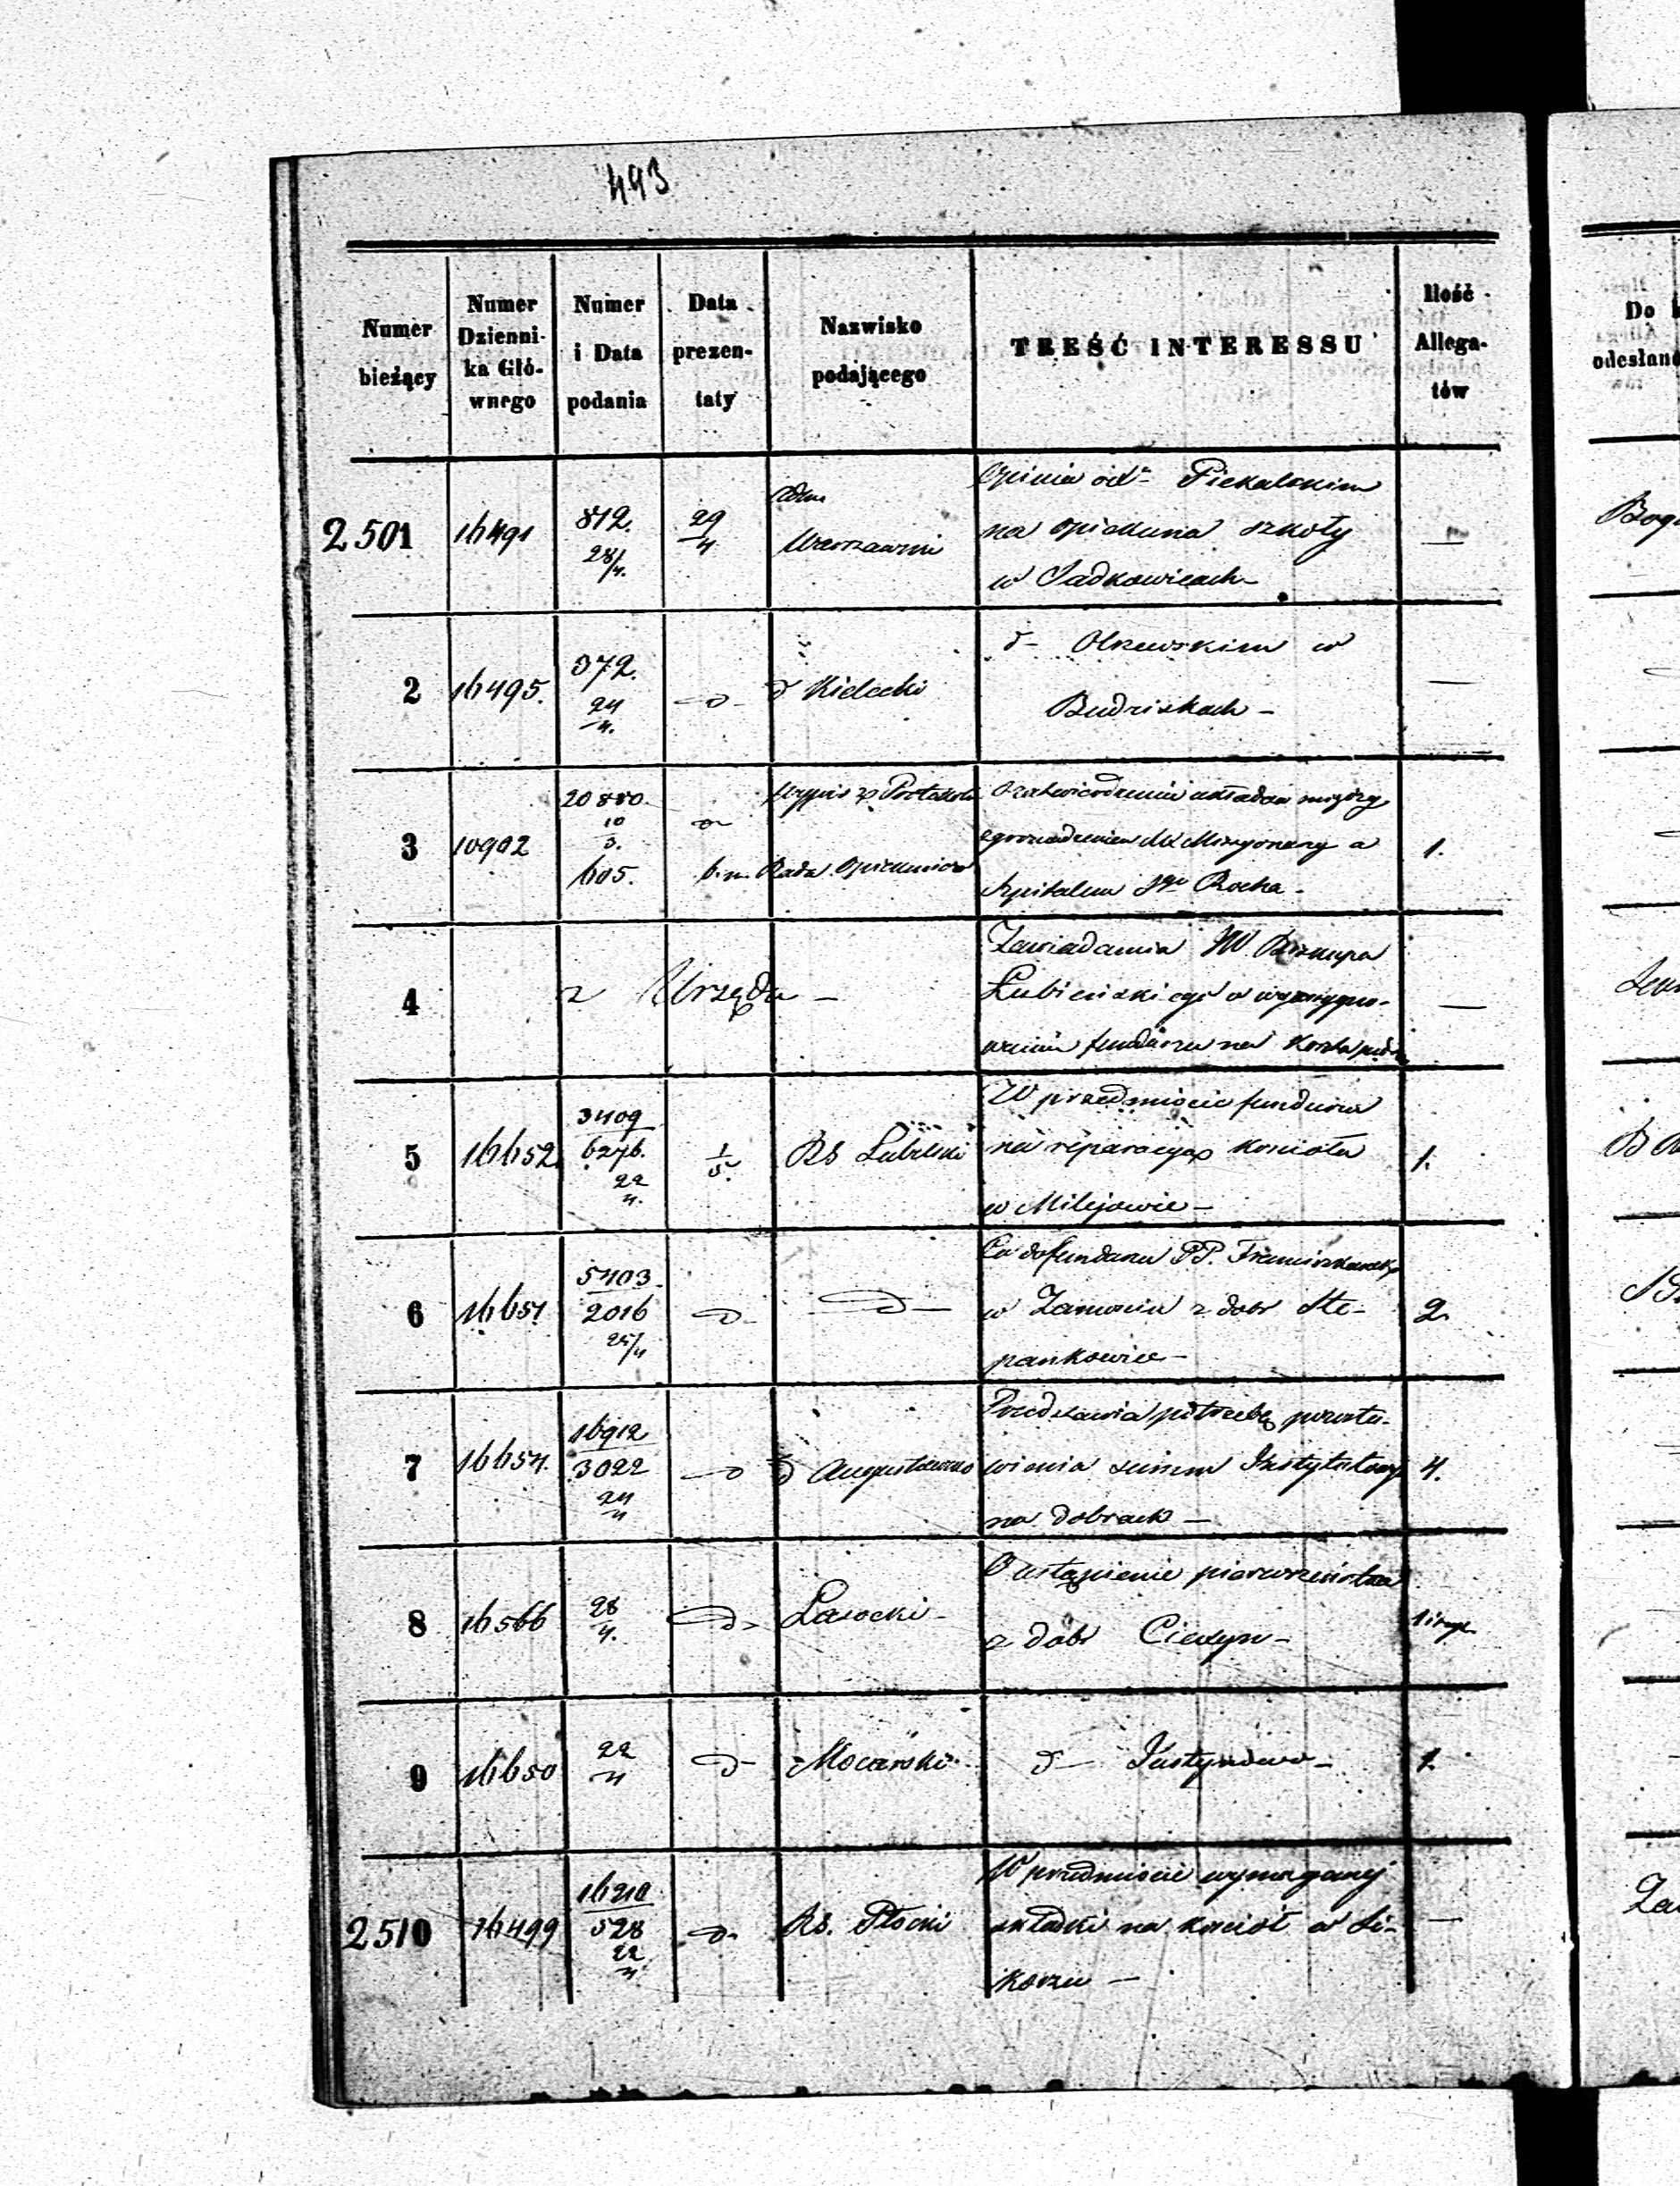 493
Numer bieżący
Numer Dzienni- ka Głó- wnego
Numer i Data podania
Data prezen- taty
Nazwisko podającego
TREŚĆ INTERESSU
Ilość Allega- tów
Do
odesłano
2501 16491 812. 28/4. 29/4
Warszawski
Opinia Piekalskim
na opiekuna szkoły
w Sadkowicach -
—
2 16495. 372. 24/4. -d- d Kielecki
d- Olszewskim w
Budziskach -
—
3 10902 20880. 10/3. 605.
wypis z Protokołu
b.m. Rada Opiekuńcza
układu między
zgromadzeniem a
Szpitalem Sgo Rocha -
1.
4 z Urzędu -
Zawiadamia JW. Biskupa
Łubieńskiego o
funduszu na
—
5 16652. 3409 6276. 22/4. 1/5. RG Lubelski
W przedmiocie funduszu
na reparacyą kościoła
w Milejowie -
1.
6 16651 5403. 2016 25/4 -d- -d-
Co do funduszu PP. Franciszkanek
w Zamościu z dobr Ste-
pankowice -
2.
7 16654. 16912 3022 24/4 -d d Augustowski
Przedstawia potrzebę
wienia summ
na dobrach -
4.
8 16566 28/4. -d- Lasocki -
O ustąpienie pierwszeństwa
z dobr
9 16650 22/4 -d- Mocarski -
d- Justynowo -
1.
2510 16499 16210 528 22/4 -d- RG. Płocki
W przedmiocie wymaganej
składki na kościół w Si-
korzu -
—